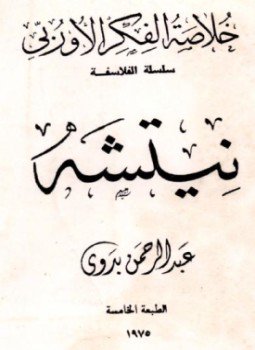 خلاصة الفكر الأوربي
سلسلة الفلاسفة
نيتشه
عبد الرحمن بدوى
الطبعة الخامسة
١٩٧٥